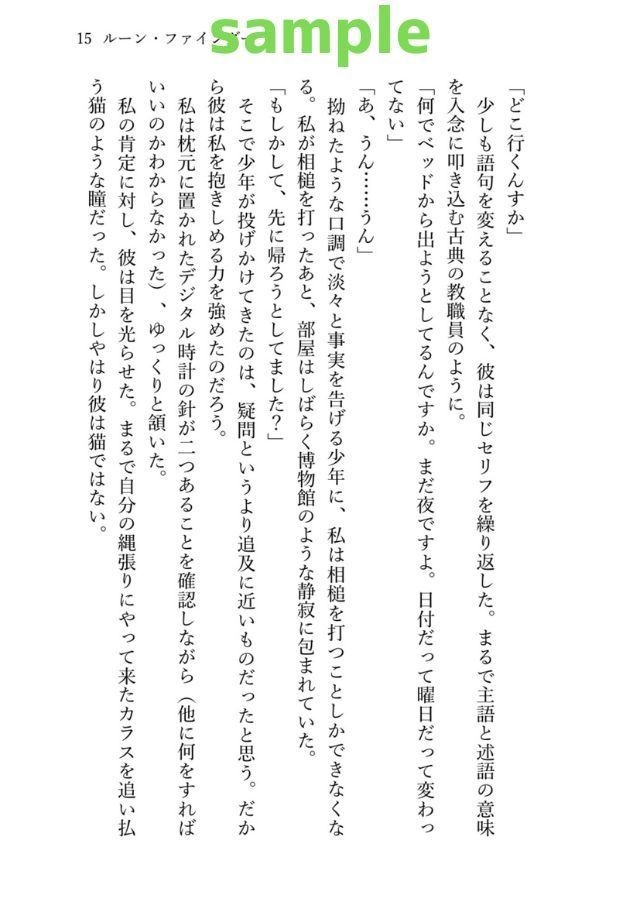 sample
15 ルーン・ファインダー
「どこ行くんすか」
少しも語句を変えることなく、彼は同じセリフを繰り返した。まるで主語と述語の意味
を入念に叩き込む古典の教職員のように。
「何でベッドから出ようとしてるんですか。まだ夜ですよ。日付だって曜日だって変わっ
てない」
「あ、うん……うん」
拗ねたような口調で淡々と事実を告げる少年に、私は相槌を打つことしかできなくな
る。私が相槌を打ったあと、部屋はしばらく博物館のような静寂に包まれていた。
「もしかして、先に帰ろうとしてました？」
そこで少年が投げかけてきたのは、疑問というより追及に近いものだったと思う。だか
ら彼は私を抱きしめる力を強めたのだろう。
私は枕元に置かれたデジタル時計の針が二つあることを確認しながら（他に何をすれば
いいのかわからなかった）、ゆっくりと頷いた。
私の肯定に対し、彼は目を光らせた。まるで自分の縄張りにやって来たカラスを追い払
う猫のような瞳だった。しかしやはり彼は猫ではない。